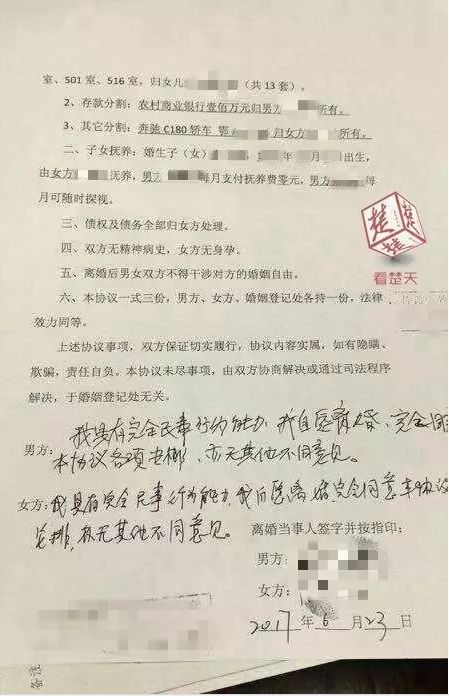 室、501 室、516 室，归女儿（共 13 套）。
2、存款分割：农村商业银行壹佰万元归男方所有。
3、其它分割：奔驰 C180 轿车 鄂归女方所有。
二、子女抚养：婚生子（女）年月出生，
由女方抚养，男方每月支付抚养费壹元，男方每
月可随时探视。
三、债权及债务全部归女方处理。
四、双方无精神病史，女方无身孕。
五、离婚后男女双方不得干涉对方的婚姻自由。
六、本协议一式三份，男方、女方、婚姻登记处各持一份，法律
效力同等。
看楚天
上述协议事项，双方保证切实履行，协议内容实属，如有隐瞒、
欺骗，责任自负。本协议未尽事项，由双方协商解决或通过司法程序
解决，于婚姻登记处无关。
我具有完全民事行为能力，我自愿离婚，完全同
男方：本协议各项安排，亦无其他不同意见。
女方：我具有完全民事行为能力，我自愿离婚完全同意本协议
安排，亦无其他不同意见。
离婚当事人签字并按指印：
男方：
女方：
2017 年 6 月 23 日
备注